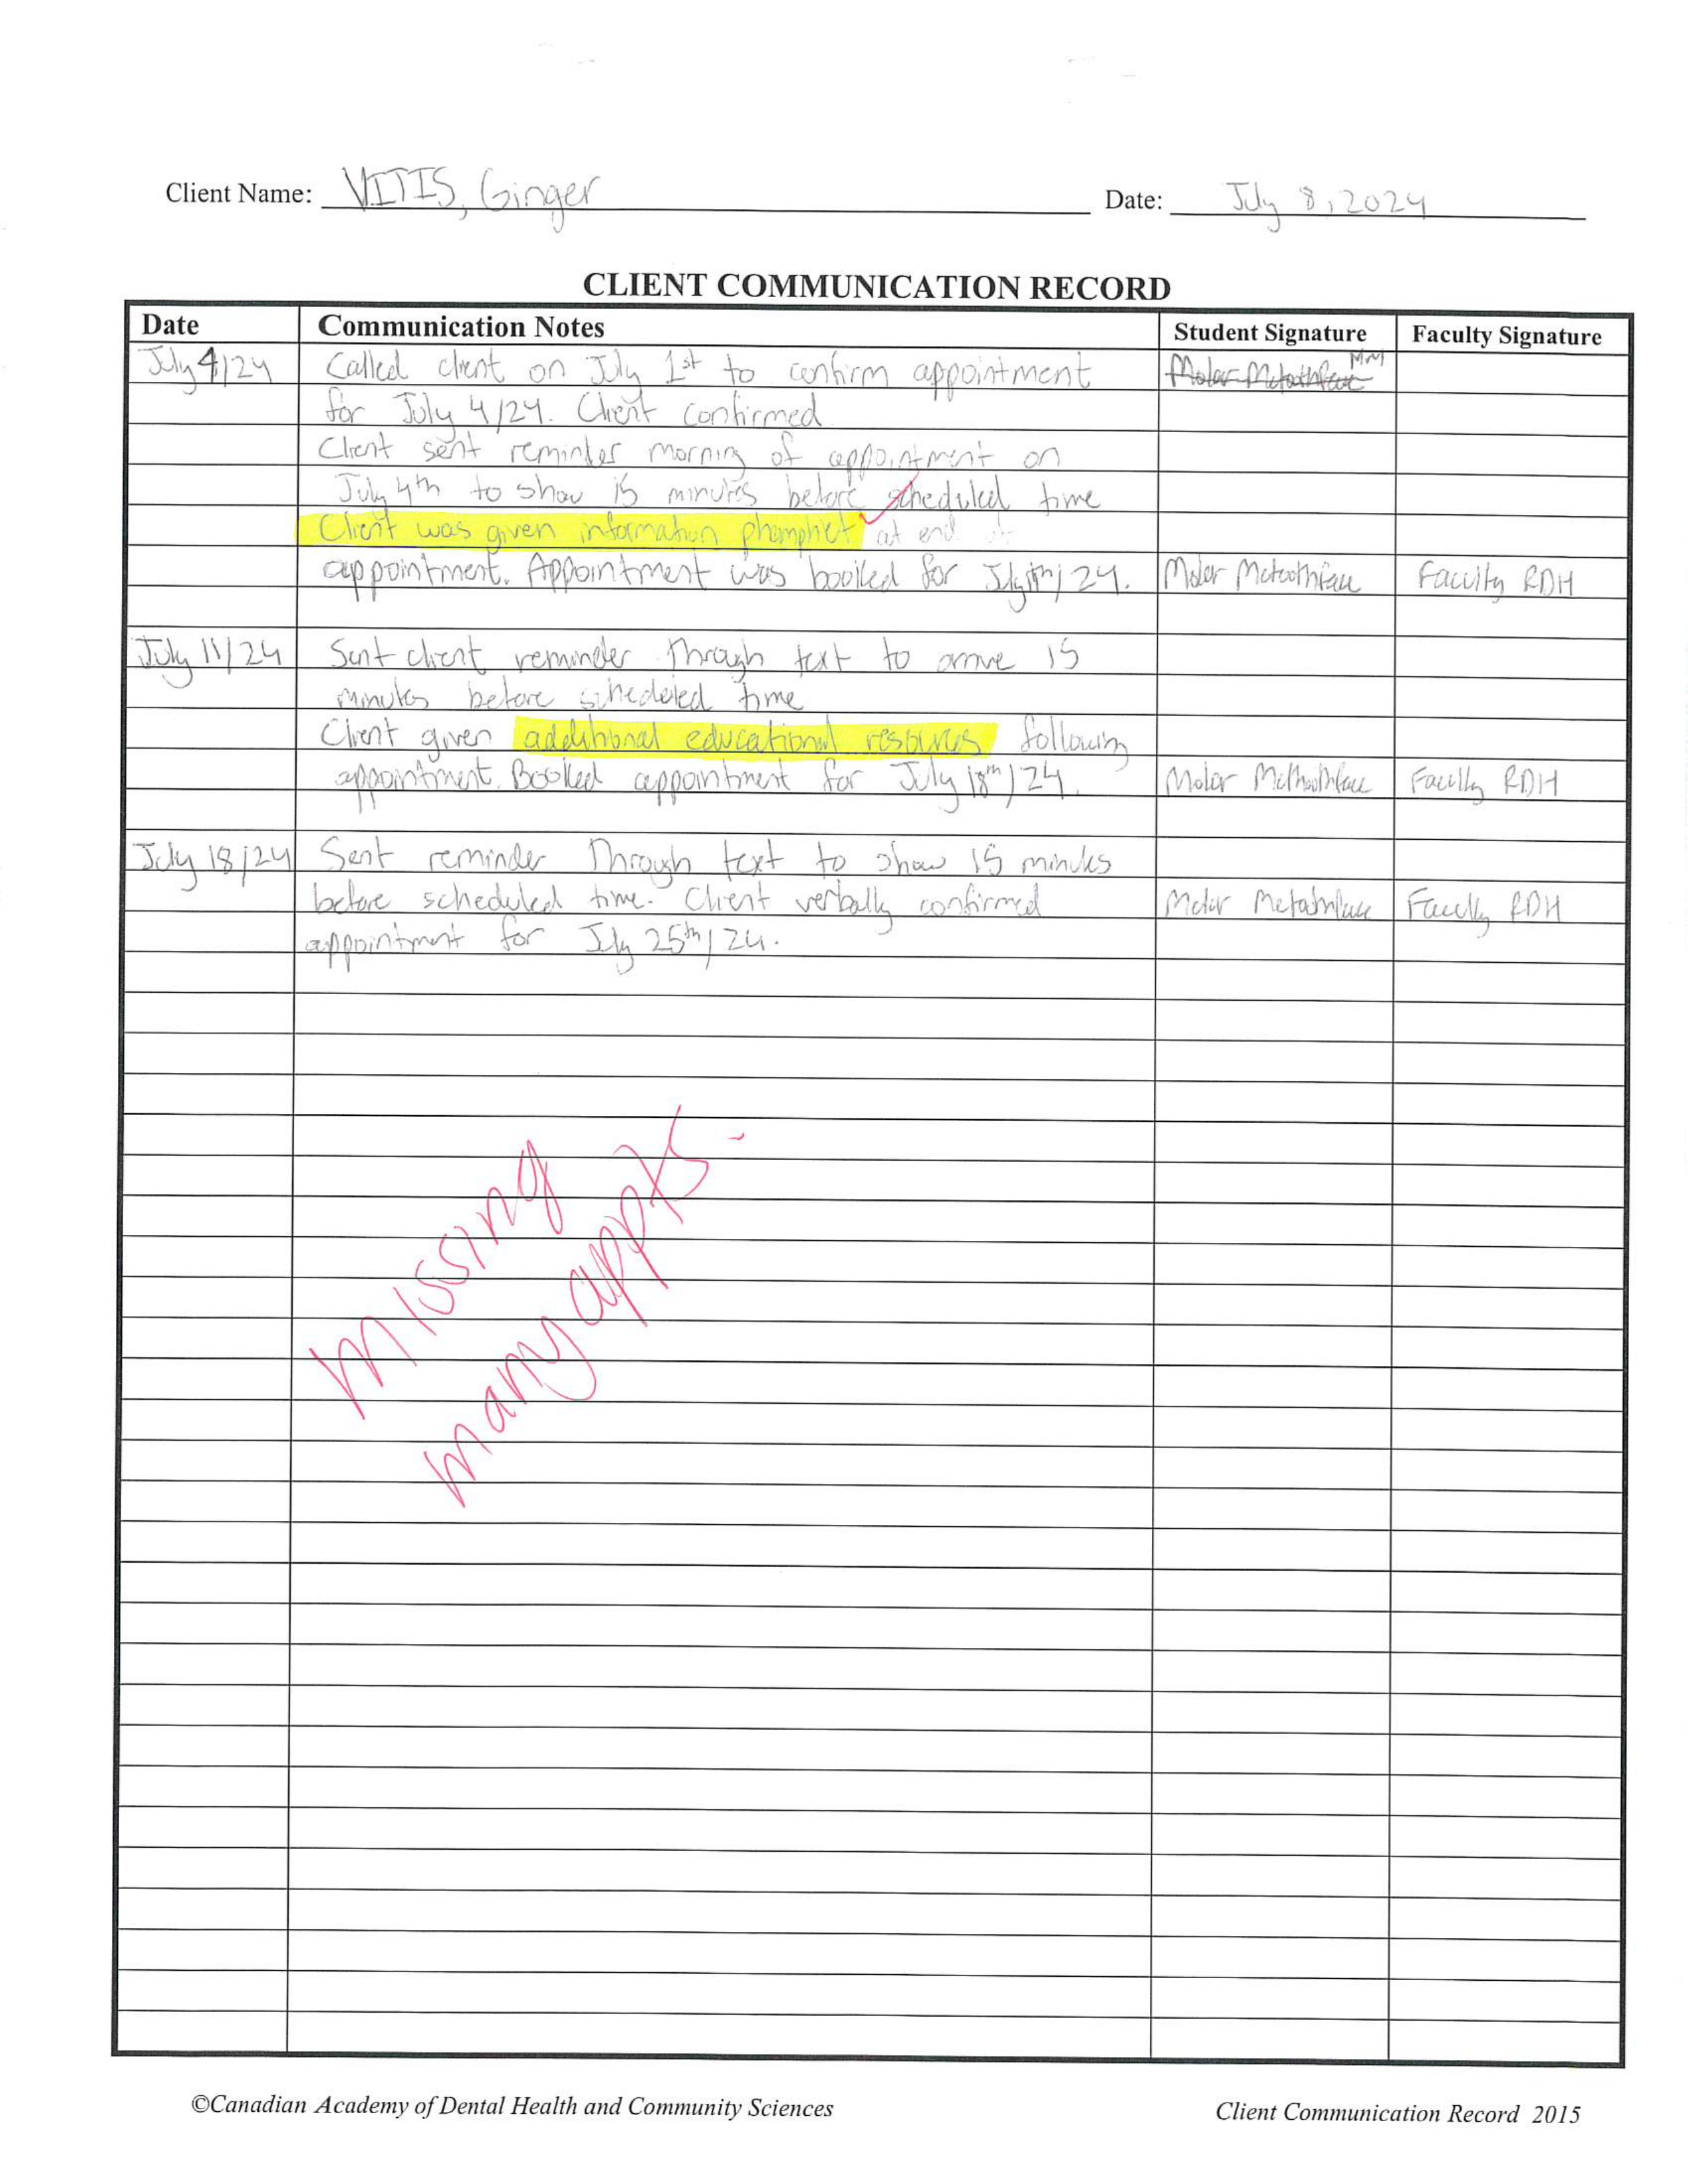 Client Name: VITIS, Ginger Date: July 8, 2024
CLIENT COMMUNICATION RECORD
Date Communication Notes Student Signature Faculty Signature
July 4/24 Called client on July 1st to confirm appointment Molar Mctoothface MM
for July 4/24. Client confirmed
Client sent reminder morning of appointment on
July 4th to show 15 minutes before scheduled time
Client was given information phamphlet at end of
appointment. Appointment was booked for July 24. Molar Mctoothface Faculty RDH
July 11/24 Sent client reminder through text to arrive 15
minutes before scheduled time
Client given additional educational resources following
appointment. Booked appointment for July 18th/24. Molar Mctoothface Faculty RDH
July 18/24 Sent reminder through text to show 15 minutes
before scheduled time. Client verbally confirmed Molar Mctoothface Faculty RDH
appointment for July 25th/24.
missing
many appts.
©Canadian Academy of Dental Health and Community Sciences Client Communication Record 2015